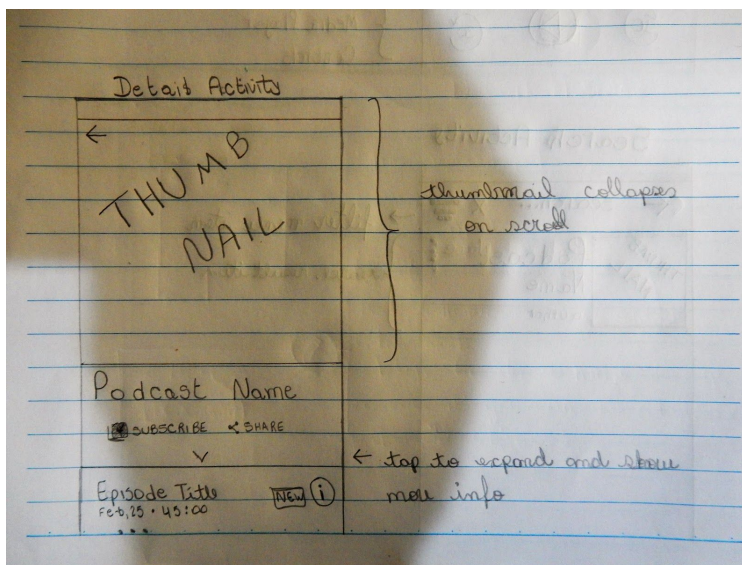 Detail Activity
←
THUMB
NAIL
thumbnail collapses
on scroll
Podcast Name
SUBSCRIBE SHARE
← tap to expand and show
more info
Episode Title NEW i
Feb, 25 • 45:00
...